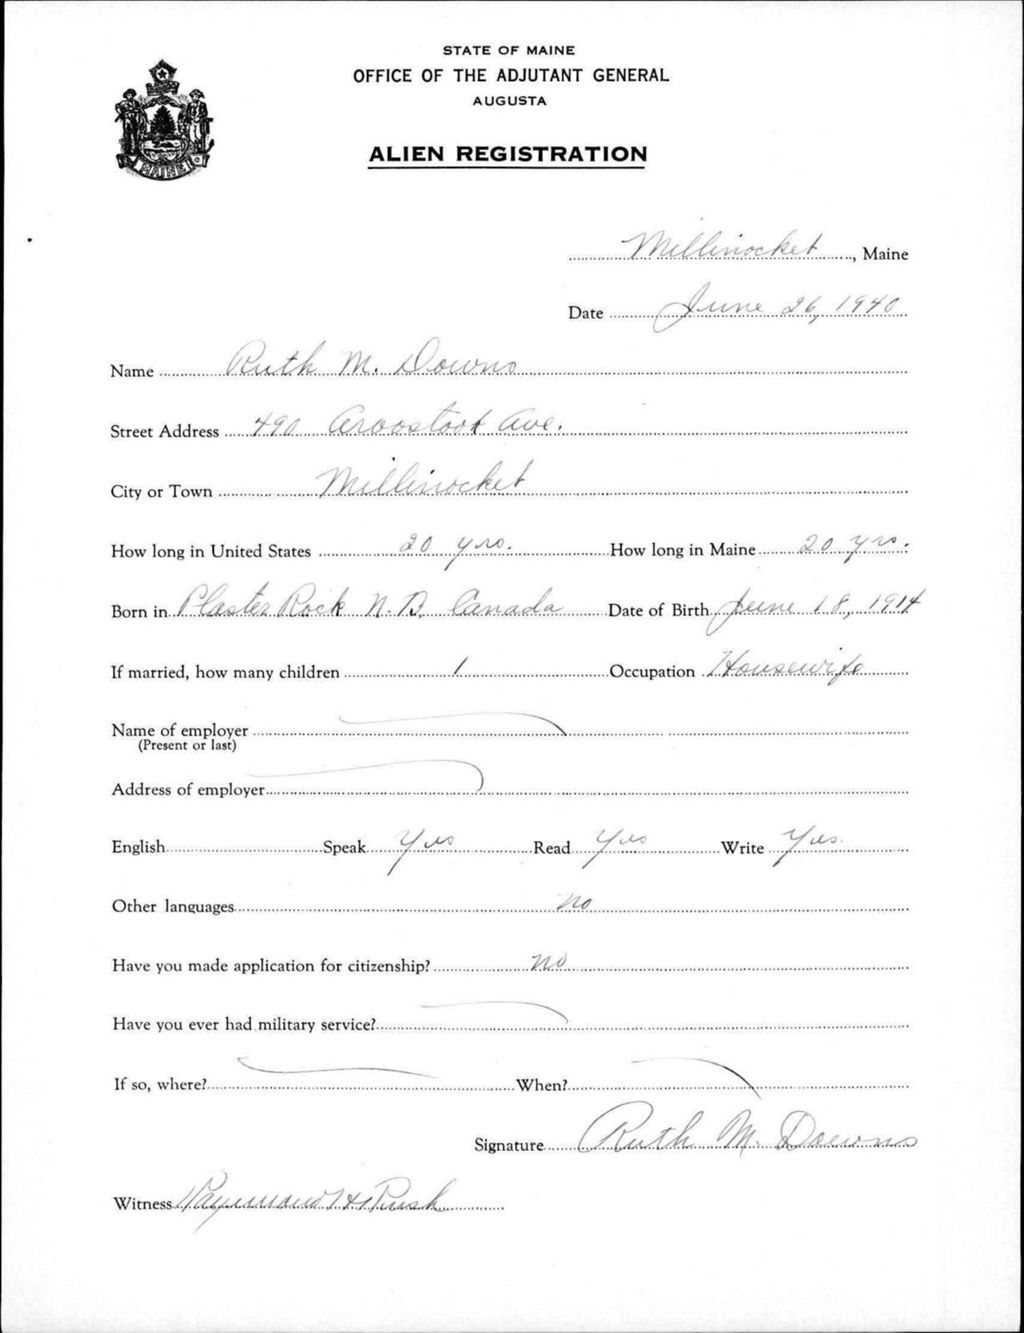 STATE OF MAINE
OFFICE OF THE ADJUTANT GENERAL
AUGUSTA
ALIEN REGISTRATION
MAINE
Millinocket, Maine
Date June 26, 1940
Name Ruth M. Downs
Street Address 490 Aroostook Ave.
City or Town Millinocket
How long in United States 20 yrs. How long in Maine 20 yrs.
Born in Plaster Rock N.B. Canada Date of Birth June 18, 1914
If married, how many children 1 Occupation Housewife
Name of employer
(Present or last)
Address of employer
English Speak Yes Read Yes Write Yes
Other languages no
Have you made application for citizenship? no
Have you ever had military service?
If so, where? When?
Signature Ruth M. Downs
Witness Raymond H Rush